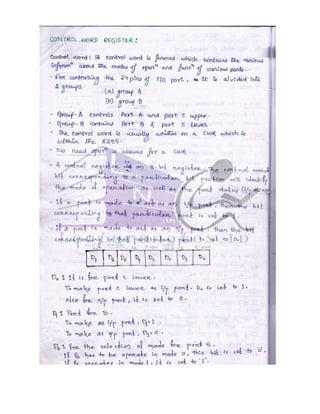 CONTROL WORD REGISTER:
Control word: A control word is formed which contains the various
informⁿ about the modes of operⁿ and funⁿ of various ports.
- For controlling the 24 pins of I/O port, it is divided into
2 groups
(a) group A
(b) group B
- Group-A controls Port A and port C upper.
- Group-B contains Port B & port C lower.
- The control word is usually written in a CWR which is
within the 8255.
- No read operⁿ is allowed for a CWR
- A control register is an 8-bit register. The control word
bit corresponding to a particular bit position will identify
the mode of operation as well as the port status
- If a port is made to act as an i/p port, then the bit
corresponding to that particular port is set to 1.
- If a port is made to act as an o/p port, then the bit
corresponding to that particular port is set to [0.]
D7 D6 D5 D4 D3 D2 D1 D0
D0: It is for port C lower.
To make port C lower as i/p port, D0 is set to 1.
else for o/p port, it is set to 0.
D1: Port for B.
To make as i/p port, D1=1,
To make as o/p port, D1=0.
D2: For the selection of mode for port B.
If B has to be operate in mode 0, this bit is set to '0'.
If B operates in mode 1, it is set to '1'.